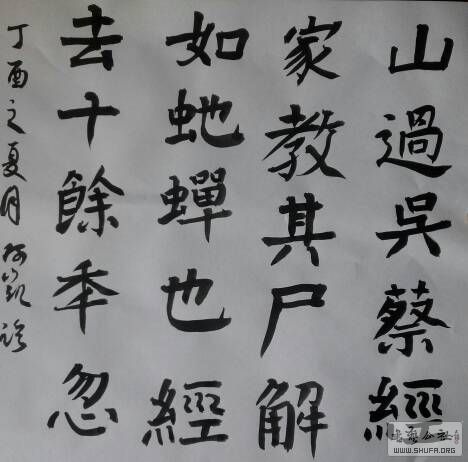 山過吳蔡經
家教其尸解
如虵蟬也經
去十餘年忽
丁酉之夏月何凱臨
WWW.SHUFA.ORG